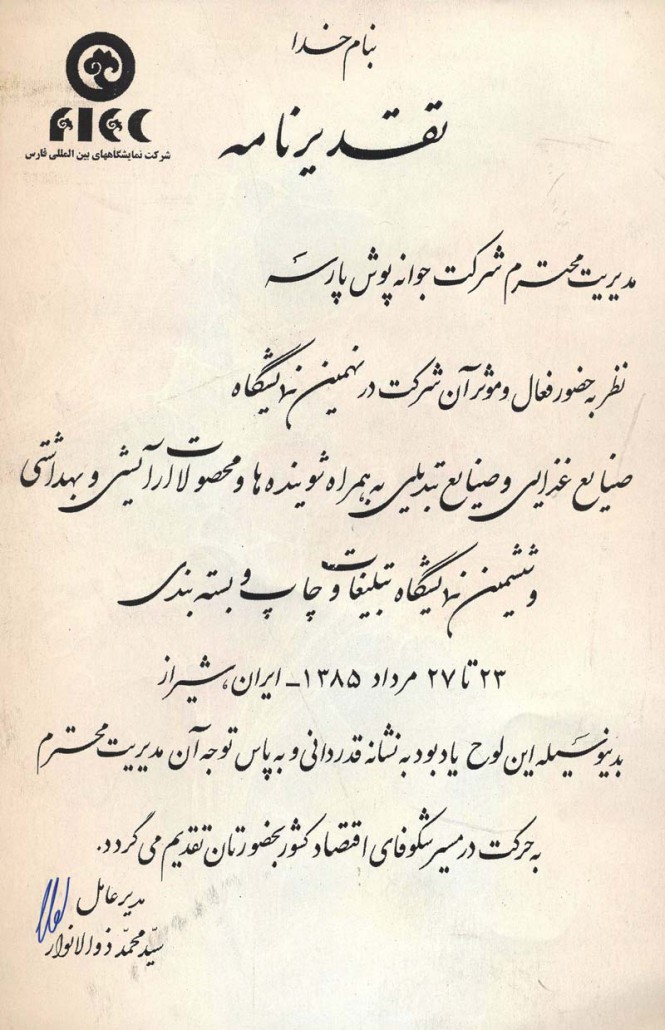 بنام خدا
FIEC
شرکت نمایشگاههای بین المللی فارس
تقدیرنامه
مدیریت محترم شرکت جوانه پوش پارسه
نظر به حضور فعال و موثر آن شرکت در نهمین نمایشگاه
صنایع غذایی و صنایع تبدیلی به همراه شوینده ها و محصولات آرایشی و بهداشتی
و ششمین نمایشگاه تبلیغات و چاپ و بسته بندی
۲۳ تا ۲۷ مرداد ۱۳۸۵ - ایران، شیراز
بدینوسیله این لوح یادبود به نشانه قدردانی و به پاس توجه آن مدیریت محترم
به حرکت در مسیر شکوفای اقتصاد کشور بحضورتان تقدیم می گردد.
مدیر عامل
سیّد محمّد ذوالانوار